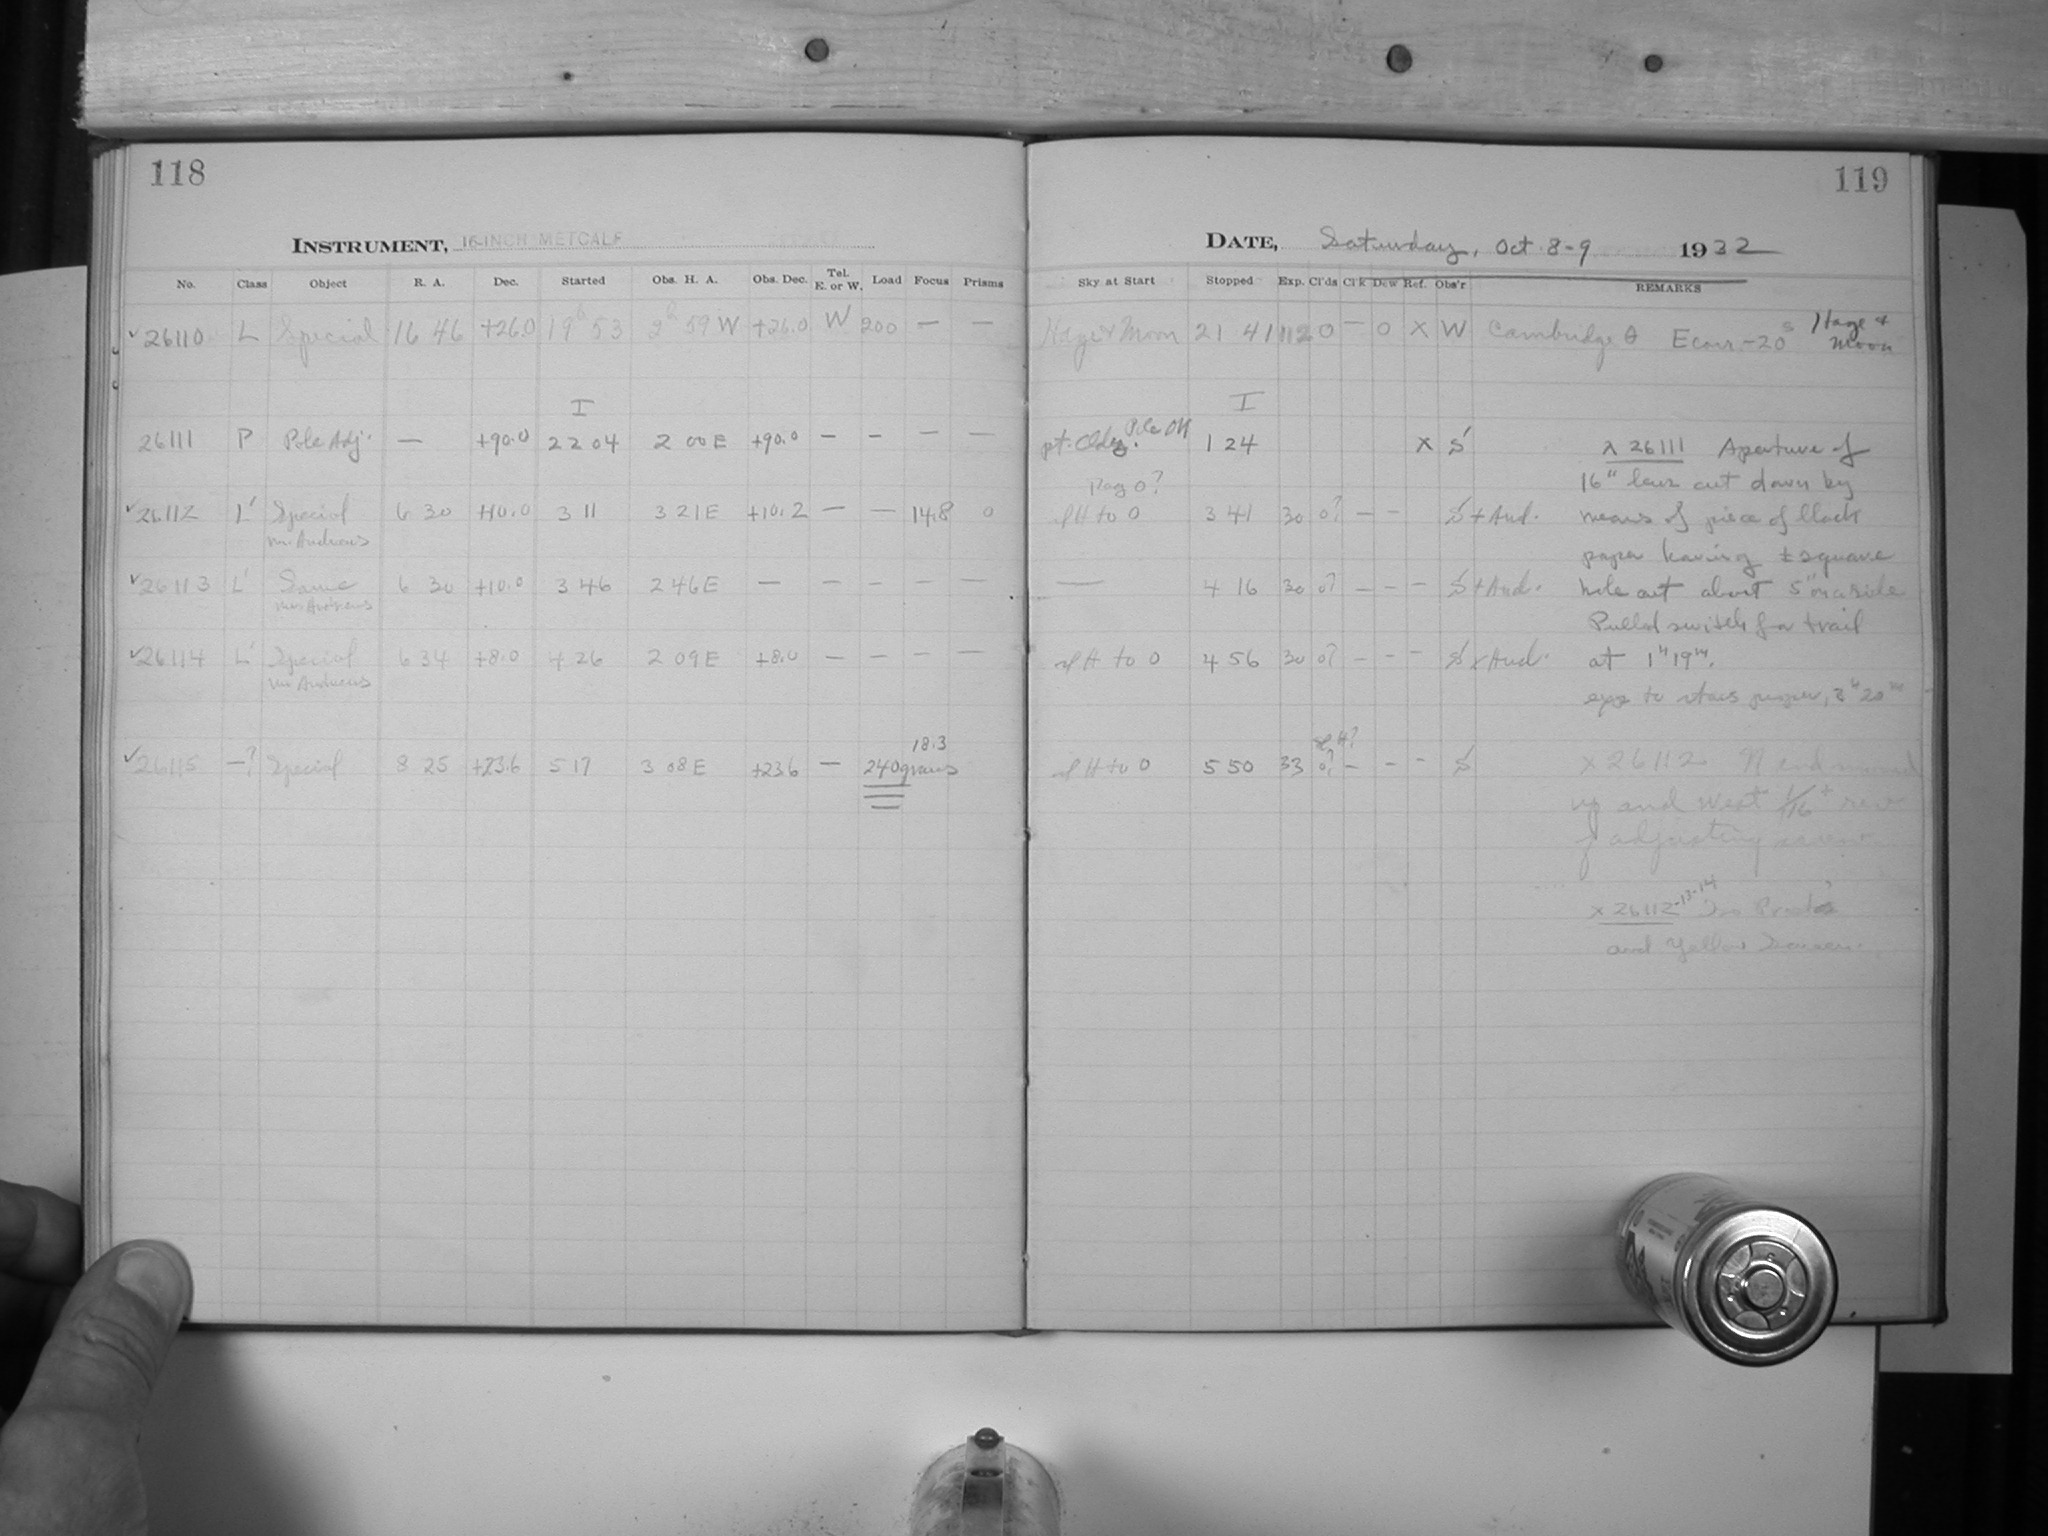 118
119
INSTRUMENT, 16-INCH METCALF
DATE, Saturday, Oct. 8-9 1932
No. Class Object R. A. Dec. Started Obs. H. A. Obs. Dec. Tel. E. or W. Load Focus Prisms
Sky at Start Stopped Exp. Cl'ds Cl'k Dew Ref. Obs'r REMARKS
✓26110 L Special 16 46 +26.0 19h 53 2h 59 W +26.0 W 200 — —
Haze & Moon 21 41 112 0 — 0 X W Cambridge Ecorr. -20s Haze & Moon
I
I
26111 P Pole Adj. — +90.0 22 04 2 00 E +90.0 — — — —
pt. Cldy. Pole OK 1 24 X S
x 26111 Aperture of
16" lens cut down by
✓26112 L' Special 6 30 +10.0 3 11 3 21 E +10.2 — — 14.8 0
Mr. Andrews
sl H to 0 3 41 30 0? — — S + And.
means of piece of black
paper having ± square
✓26113 L' Same 6 30 +10.0 3 46 2 46 E — — — — —
Mr. Andrews
— 4 16 30 0? — — — S + And.
hole cut about 5" on a side
Pulled switch for trail
✓26114 L' Special 6 34 +8.0 4 26 2 09 E +8.0 — — — —
Mr. Andrews
sl H to 0 4 56 30 0? — — — S + And.
at 1h 19m.
exp to stars proper, 3h 20m
✓26115 —? Special 8 25 +23.6 5 17 3 08 E +23.6 — 240 grams 18.3
sl H to 0 5 50 33 0? sl H? — — — S
x 26112 N end moved
up and West 1/16 + rev
of adjusting screw
x 26112-13-14
and Yellow Screen.